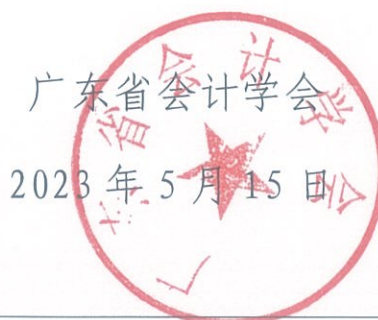 广东省会计学会
2023年5月15日
广东省会计学会